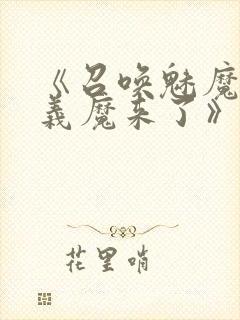 《召唤魅魔
義魔来了》
花里哨